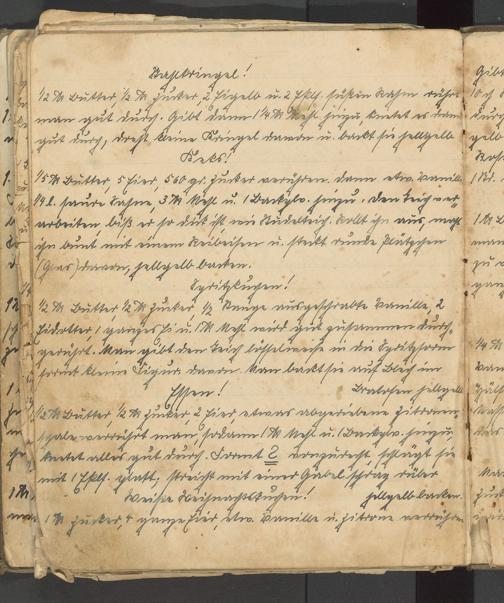 Backkringel!
1/2 ℔ Butter, 1/2 ℔ Zucker, 2 Eigelb u. 2 Eßl. süßen Rahm rührt
man gut durch. Gibt dann 1 1/4 ℔ Mehl hinzu, knetet es dann
gut durch, dreht kleine Kringel davon u. backt sie hellgelb
Keks!
1/5 ℔ Butter, 5 Eier, 500 gr. Zucker verrühren. dann etw. Vanille
1/4 l. saure Sahne, 3 ℔ Mehl u. 1 Backplv. hinzu. den Teich ver=
arbeiten biß er so dick ist wie Nudelteich. Rollt ihn aus, macht
ihn bunt mit einem Reibeisen u. stecht runde Plätzchen
(Glas) davon, hellgelb backen.
Spritzkuchen!
1/2 ℔ Butter 1/2 ℔ Zucker 1/2 Stange ausgeschabte Vanille, 2
Eidotter, 1 ganzes Ei u. 1 ℔ Mehl wird gut zusammen durch=
gerührt. Man gibt den Teich löffelweise in die Spritzform
formt kleine Figur. davon. Man backt sie auf Blech im
Essen! Bratofen hellgelb
1/2 ℔ Butter, 1/2 ℔ Zucker, 2 Eier etwas abgeriebene Zitronen=
schale verrührt man, sodann 1 ℔ Mehl u. 1 Backplv. hinzu,
knetet alles gut durch. Formt S davon, schlägt sie
mit 1 Eßl. glatt, streicht mit einer Gabel schräg rüber
Weiße Weihnachtskuchen! hellgelb backen.
1 ℔ Zucker, 4 ganze Eier, etw. Vanille u. Zitrone verrühren